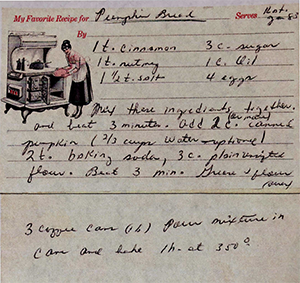 My Favorite Recipe for Pumpkin Bread Serves
By
1 t. cinnamon 3 c. sugar
1 t. nutmeg 1 c. oil
1 1/2 t. salt 4 eggs
Mix these ingredients together.
and beat 3 minutes. Add 2 c. canned
(or more)
pumpkin (2/3 cups water - optional)
2 t. baking soda, 3 c. plain unsifted
flour. Beat 3 min. Grease & flour
(over)
3 coffee cans (1 lb) Pour mixture in
cans and bake 1 h. at 350°.